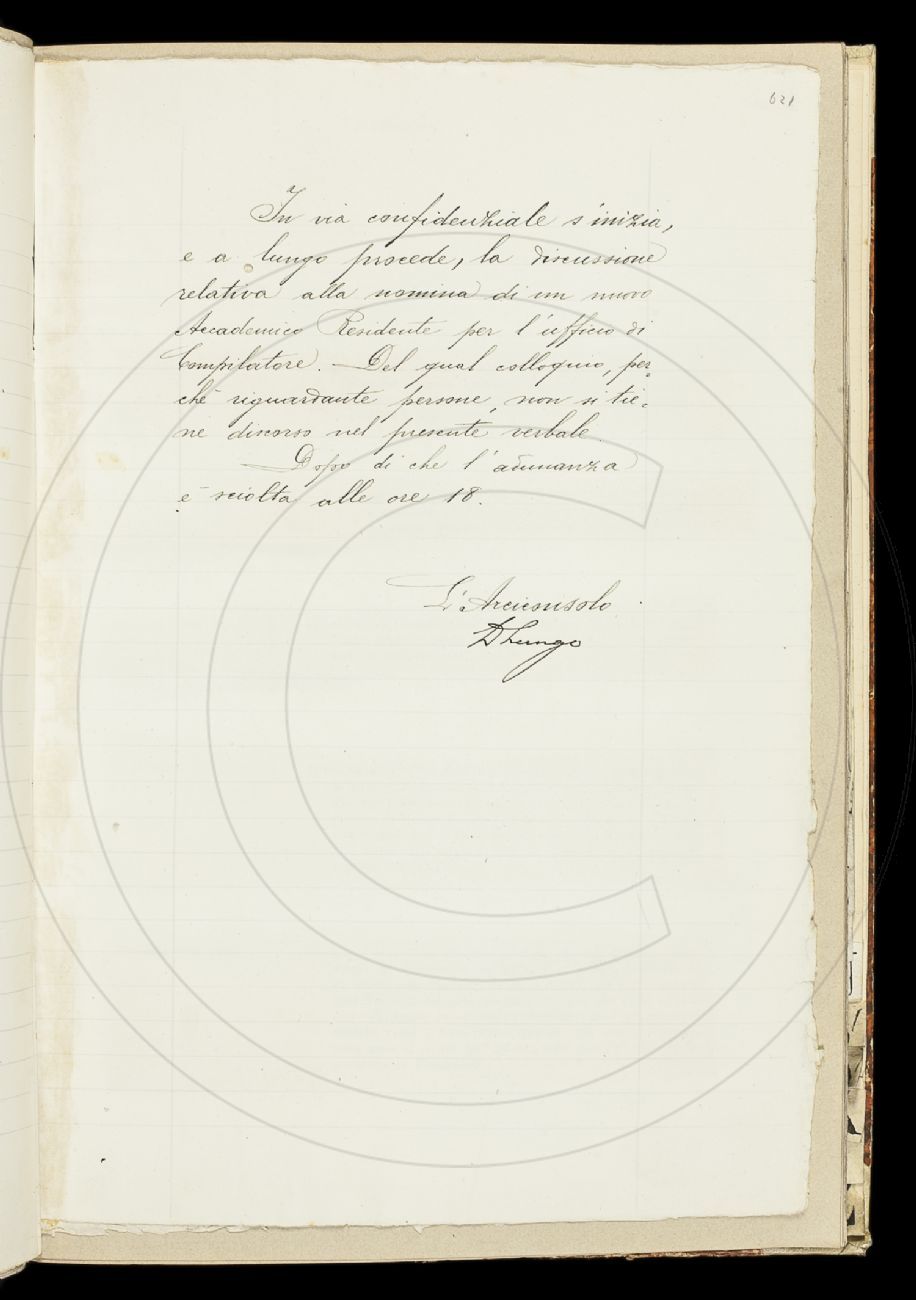 621
In via confidenziale s'inizia,
e a lungo procede, la discussione
relativa alla nomina di un nuovo
Accademico Residente per l'ufficio di
Compilatore. - Del qual colloquio, per=
ché riguardante persone, non si tie=
ne discorso nel presente verbale.
Dopo di che l'adunanza
è sciolta alle ore 18.
L'Arciconsolo
DLungo